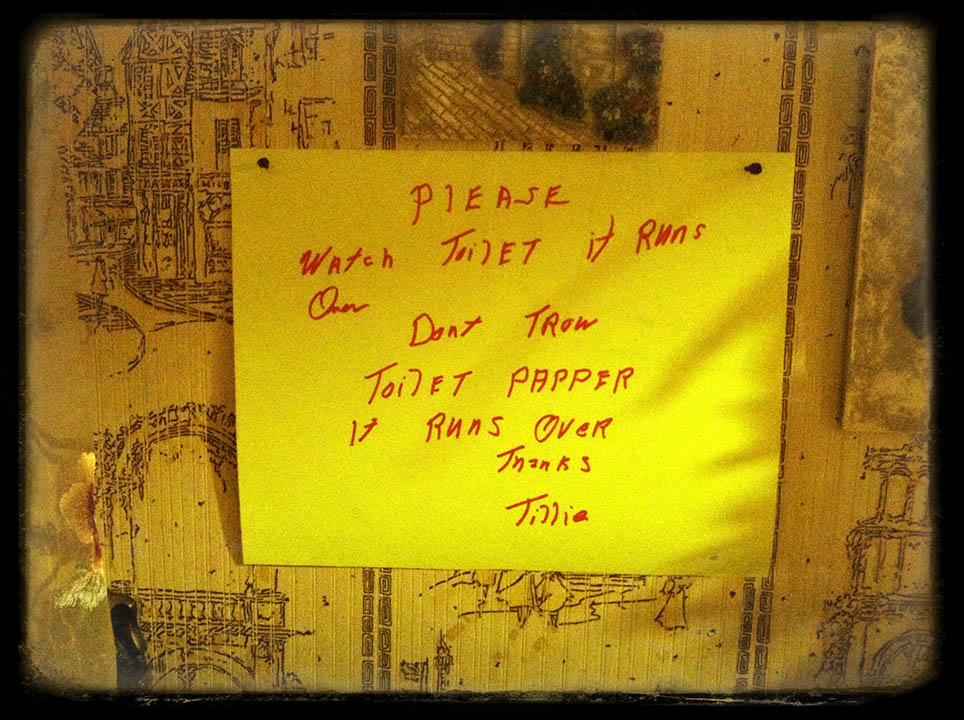 PlEASE
Watch ToilET it RUns
Over
Dont TROW
ToilET PAPPER
It RUns OveR
Thanks
Tillie